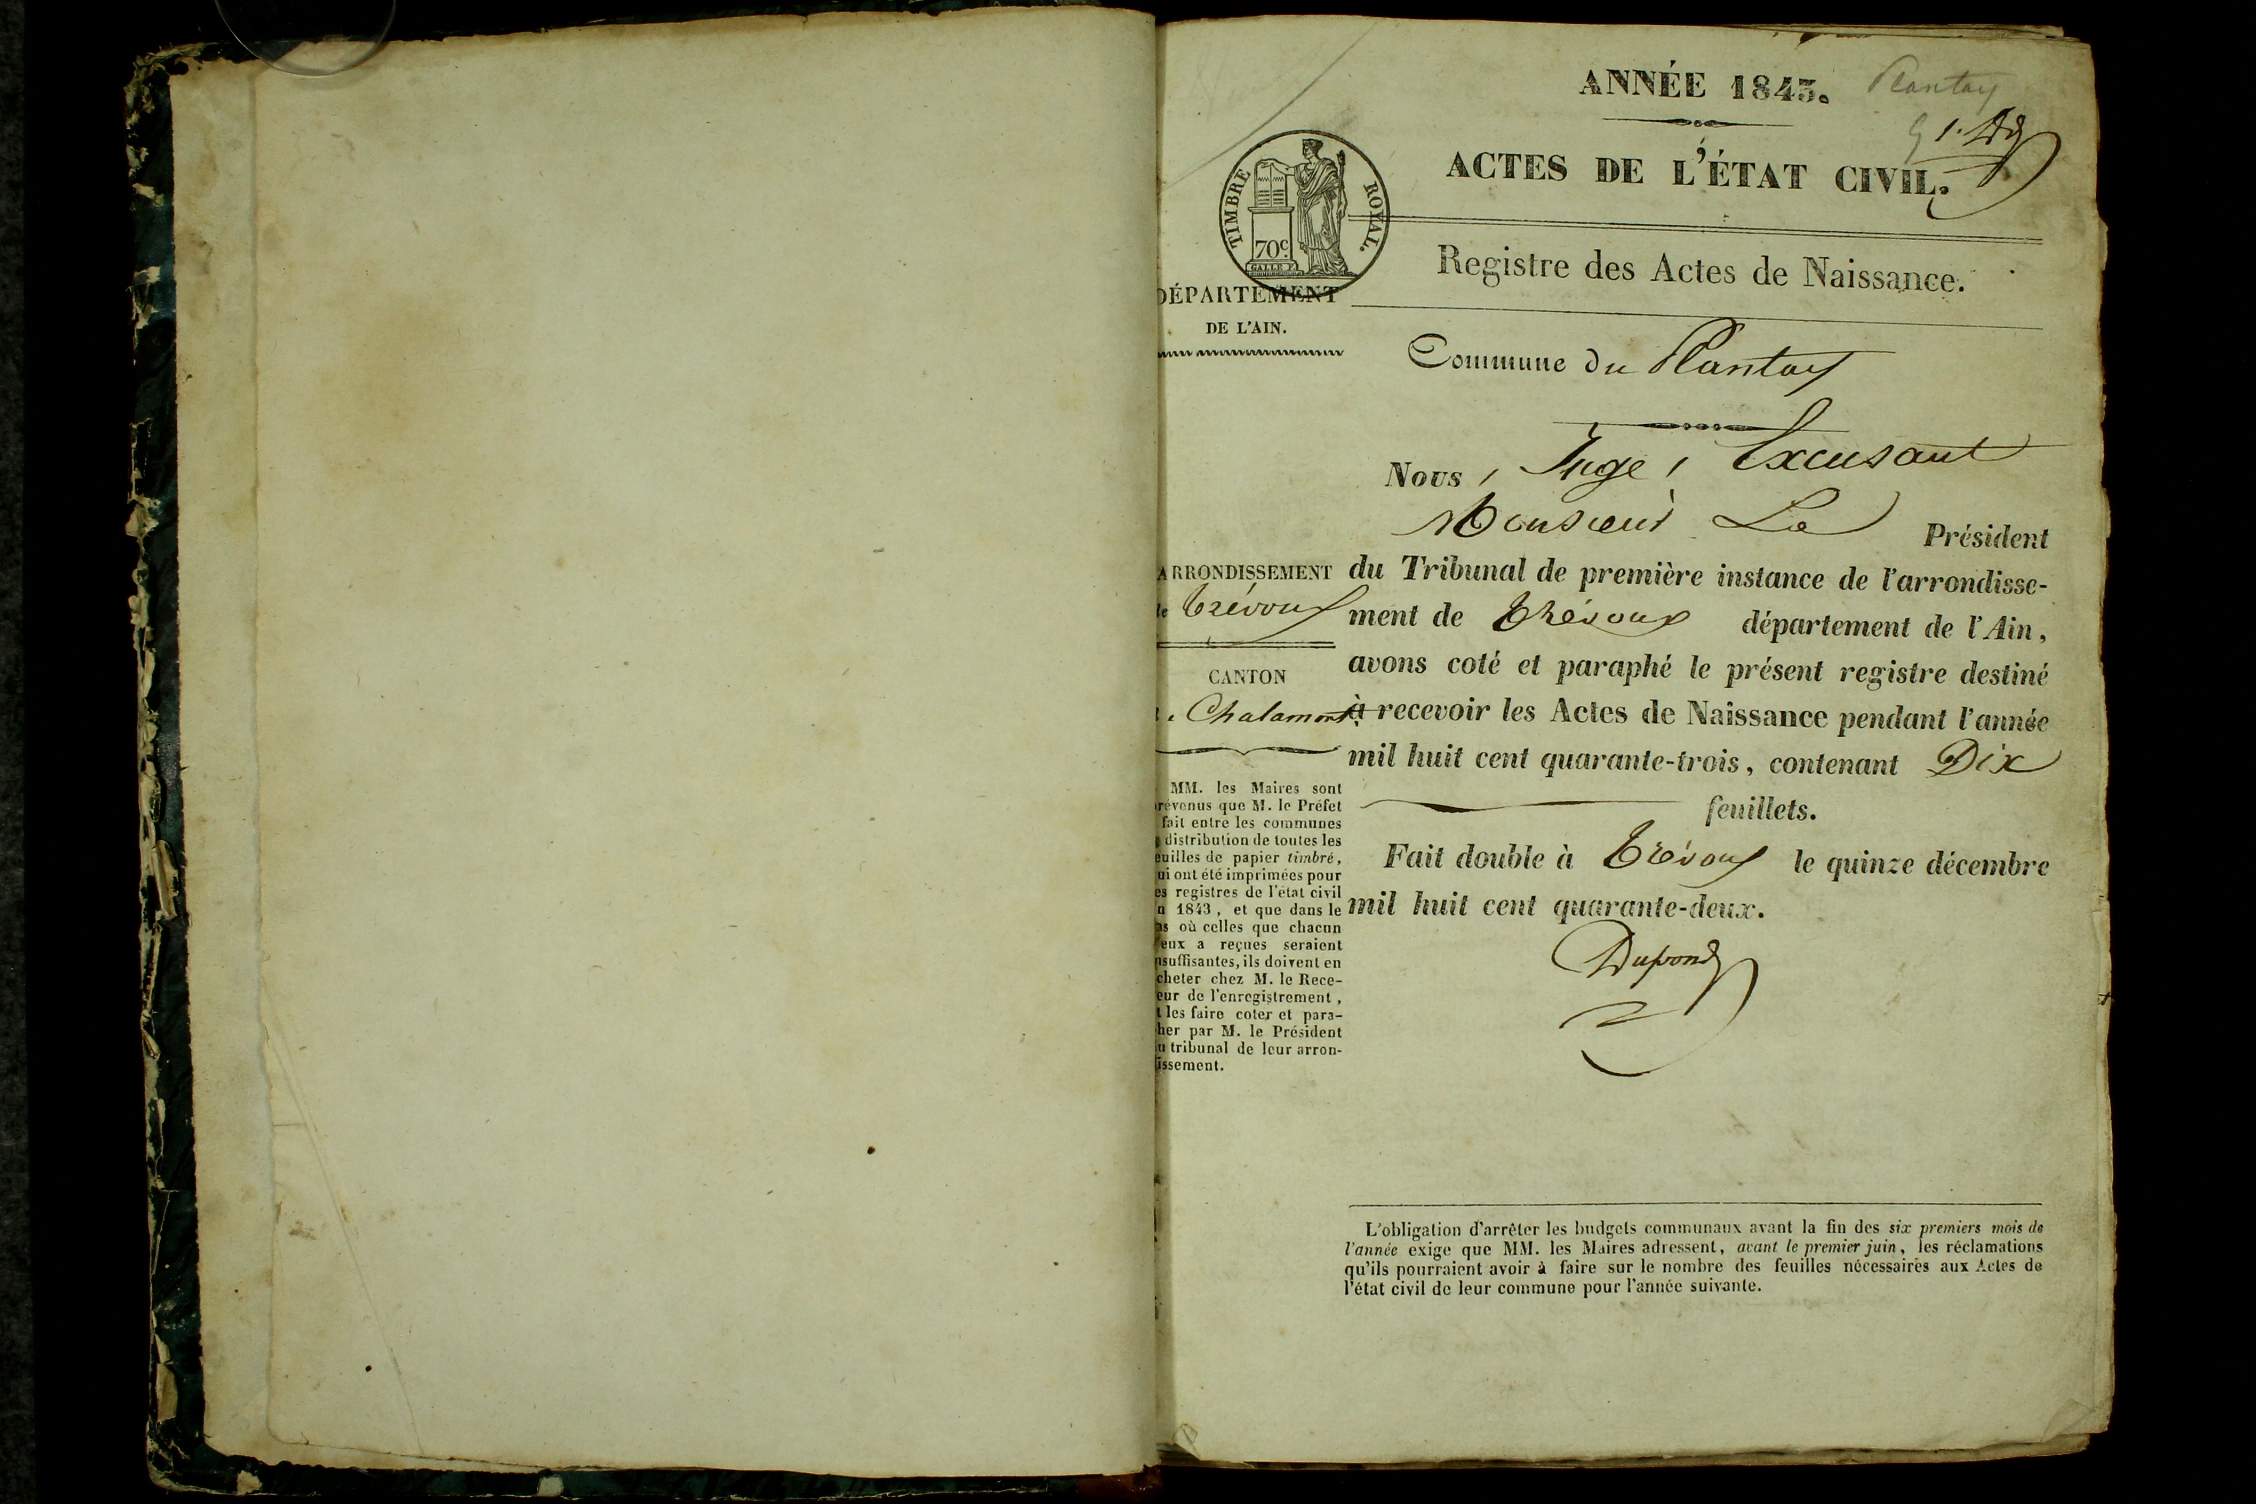 ANNÉE 1843.
Plantay
ACTES DE L'ÉTAT CIVIL.
TIMBRE ROYAL.
70c.
Registre des Actes de Naissance.
DÉPARTEMENT
DE L'AIN.
Commune du Plantay
Nous, Juge, Excusant
Monsieur Le Président
du Tribunal de première instance de l'arrondisse-
ment de Trévoux département de l'Ain,
avons coté et paraphé le présent registre destiné
à recevoir les Actes de Naissance pendant l'année
mil huit cent quarante-trois, contenant Dix
feuillets.
Fait double à Trévoux le quinze décembre
mil huit cent quarante-deux.
Dupond
ARRONDISSEMENT
de Trévoux
CANTON
Chalamont
MM. les Maires sont
révenus que M. le Préfet
fait entre les communes
distribution de toutes les
euilles de papier timbré,
ui ont été imprimées pour
es registres de l'état civil
n 1843, et que dans le
as où celles que chacun
eux a reçues seraient
nsuffisantes, ils doivent en
cheter chez M. le Rece-
eur de l'enregistrement,
t les faire coter et para-
her par M. le Président
u tribunal de leur arron-
issement.
L'obligation d'arrêter les budgets communaux avant la fin des six premiers mois de
l'année exige que MM. les Maires adressent, avant le premier juin, les réclamations
qu'ils pourraient avoir à faire sur le nombre des feuilles nécessaires aux Actes de
l'état civil de leur commune pour l'année suivante.